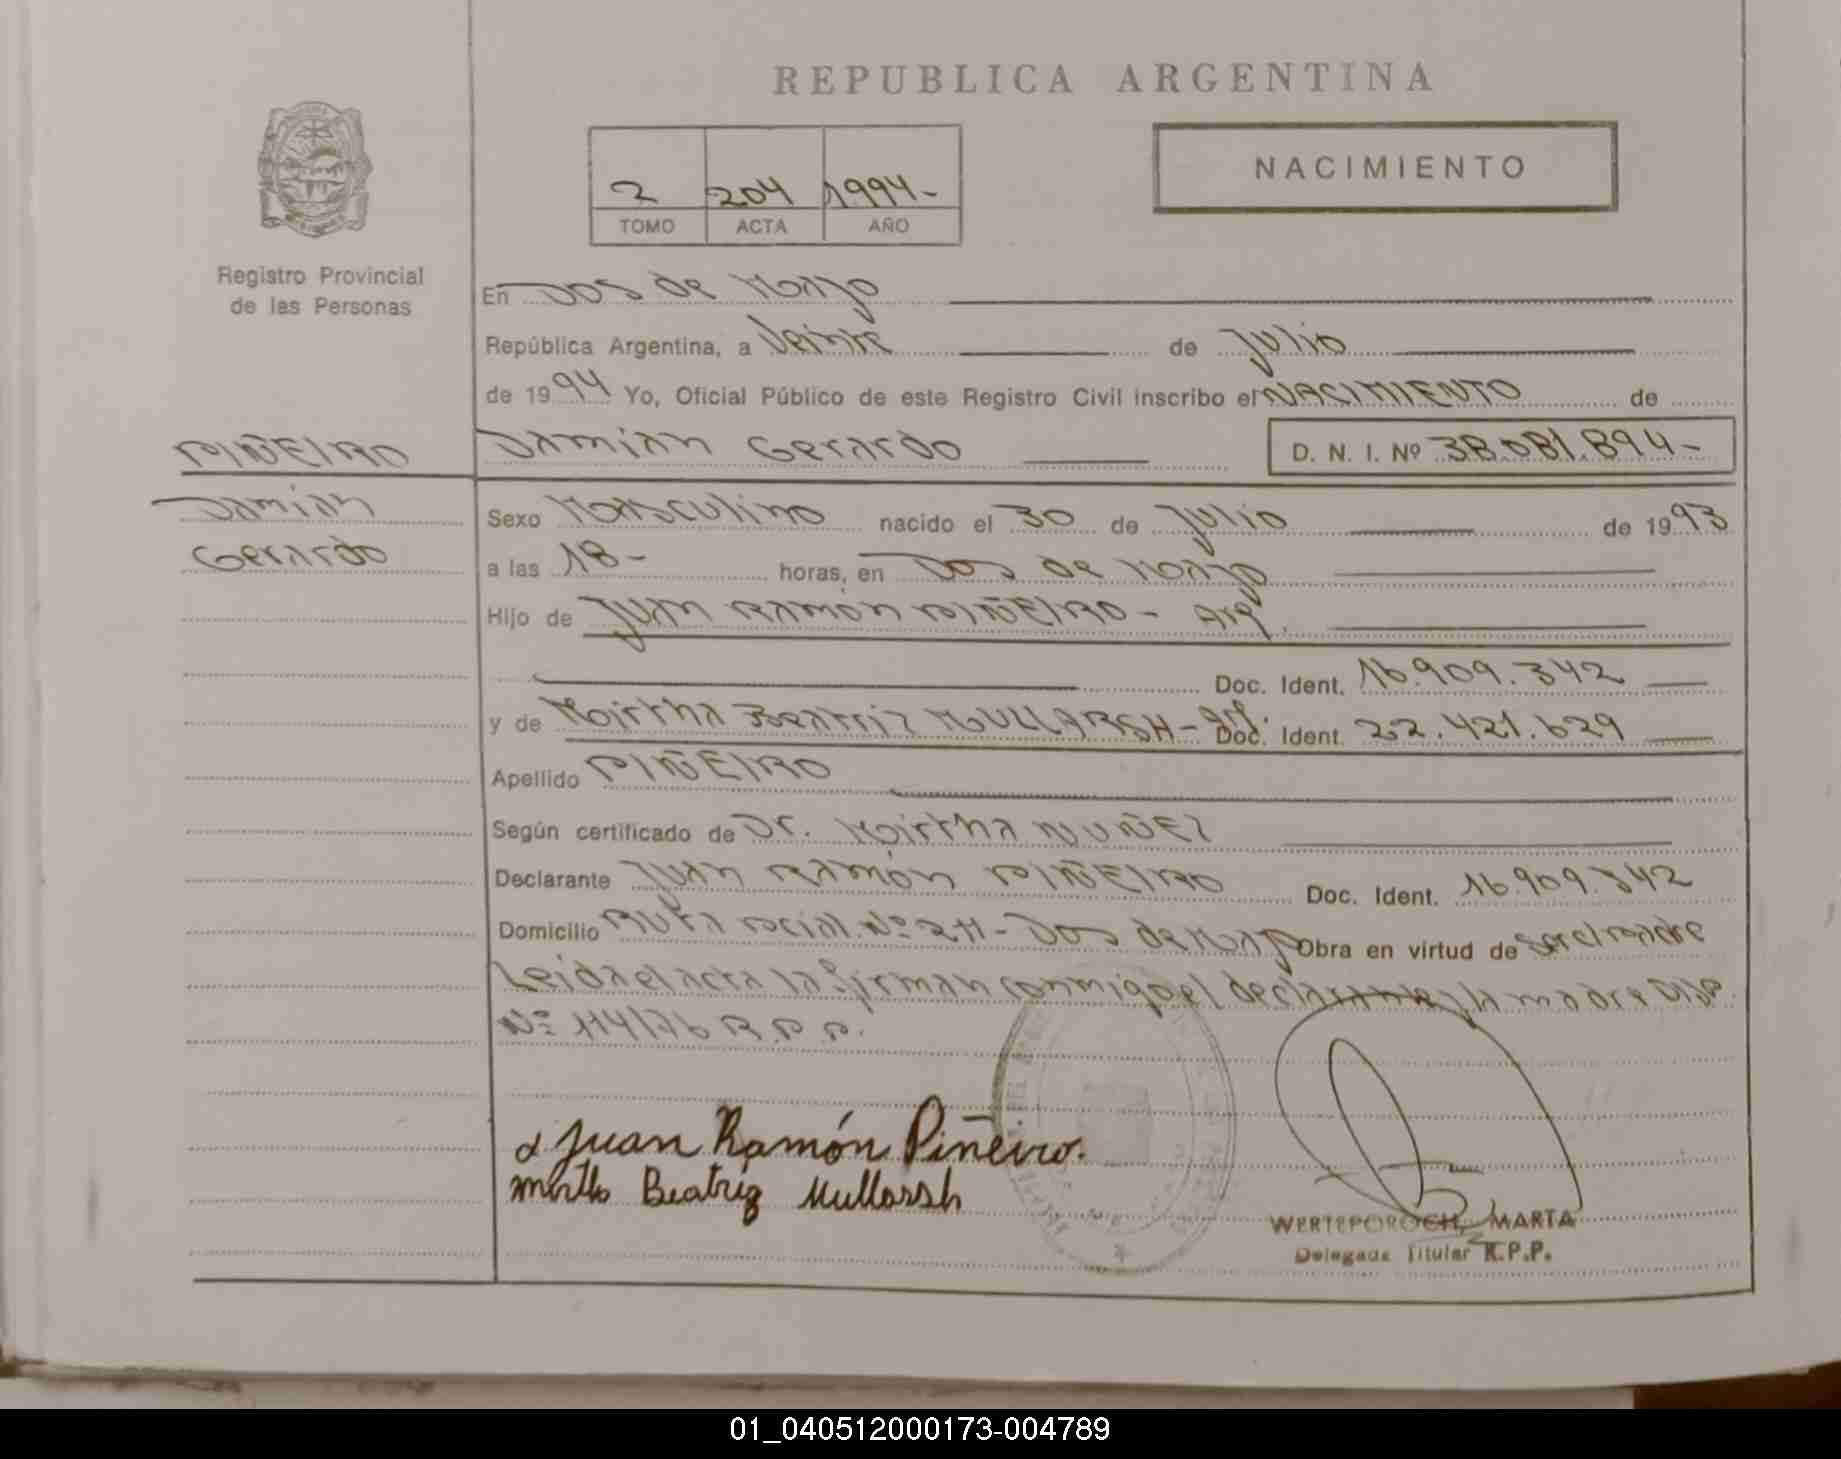 REPUBLICA ARGENTINA
NACIMIENTO
2 204 1994-
TOMO ACTA AÑO
Registro Provincial
de las Personas
En Dos de Mayo
República Argentina, a Veinte de Julio
de 1994 Yo, Oficial Público de este Registro Civil inscribo el NACIMIENTO de
PIÑEIRO
Damian Gerardo D. N. I. Nº 38.081.894-
Damian
Gerardo
Sexo Masculino nacido el 30 de Julio de 1993
a las 18- horas, en Dos de Mayo
Hijo de Juan Ramón PIÑEIRO - Arg.
Doc. Ident. 16.909.342
y de Mirtha Beatriz MULLARSH - arg. Doc. Ident. 22.421.629
Apellido PIÑEIRO
Según certificado de Dr. Mirtha NUÑEZ
Declarante Juan Ramón PIÑEIRO Doc. Ident. 16.909.342
Domicilio Ruta Nº 211 - Dos de Mayo Obra en virtud de ser el padre
Leida el acta la firman conmigo el declarante y la madre DISP.
Nº 114/76 R.P.P.
Juan Ramón Piñeiro.
Mirtha Beatriz Mullarsh
WERTEPOROCH, MARTA
Delegada Titular R.P.P.
01_040512000173-004789